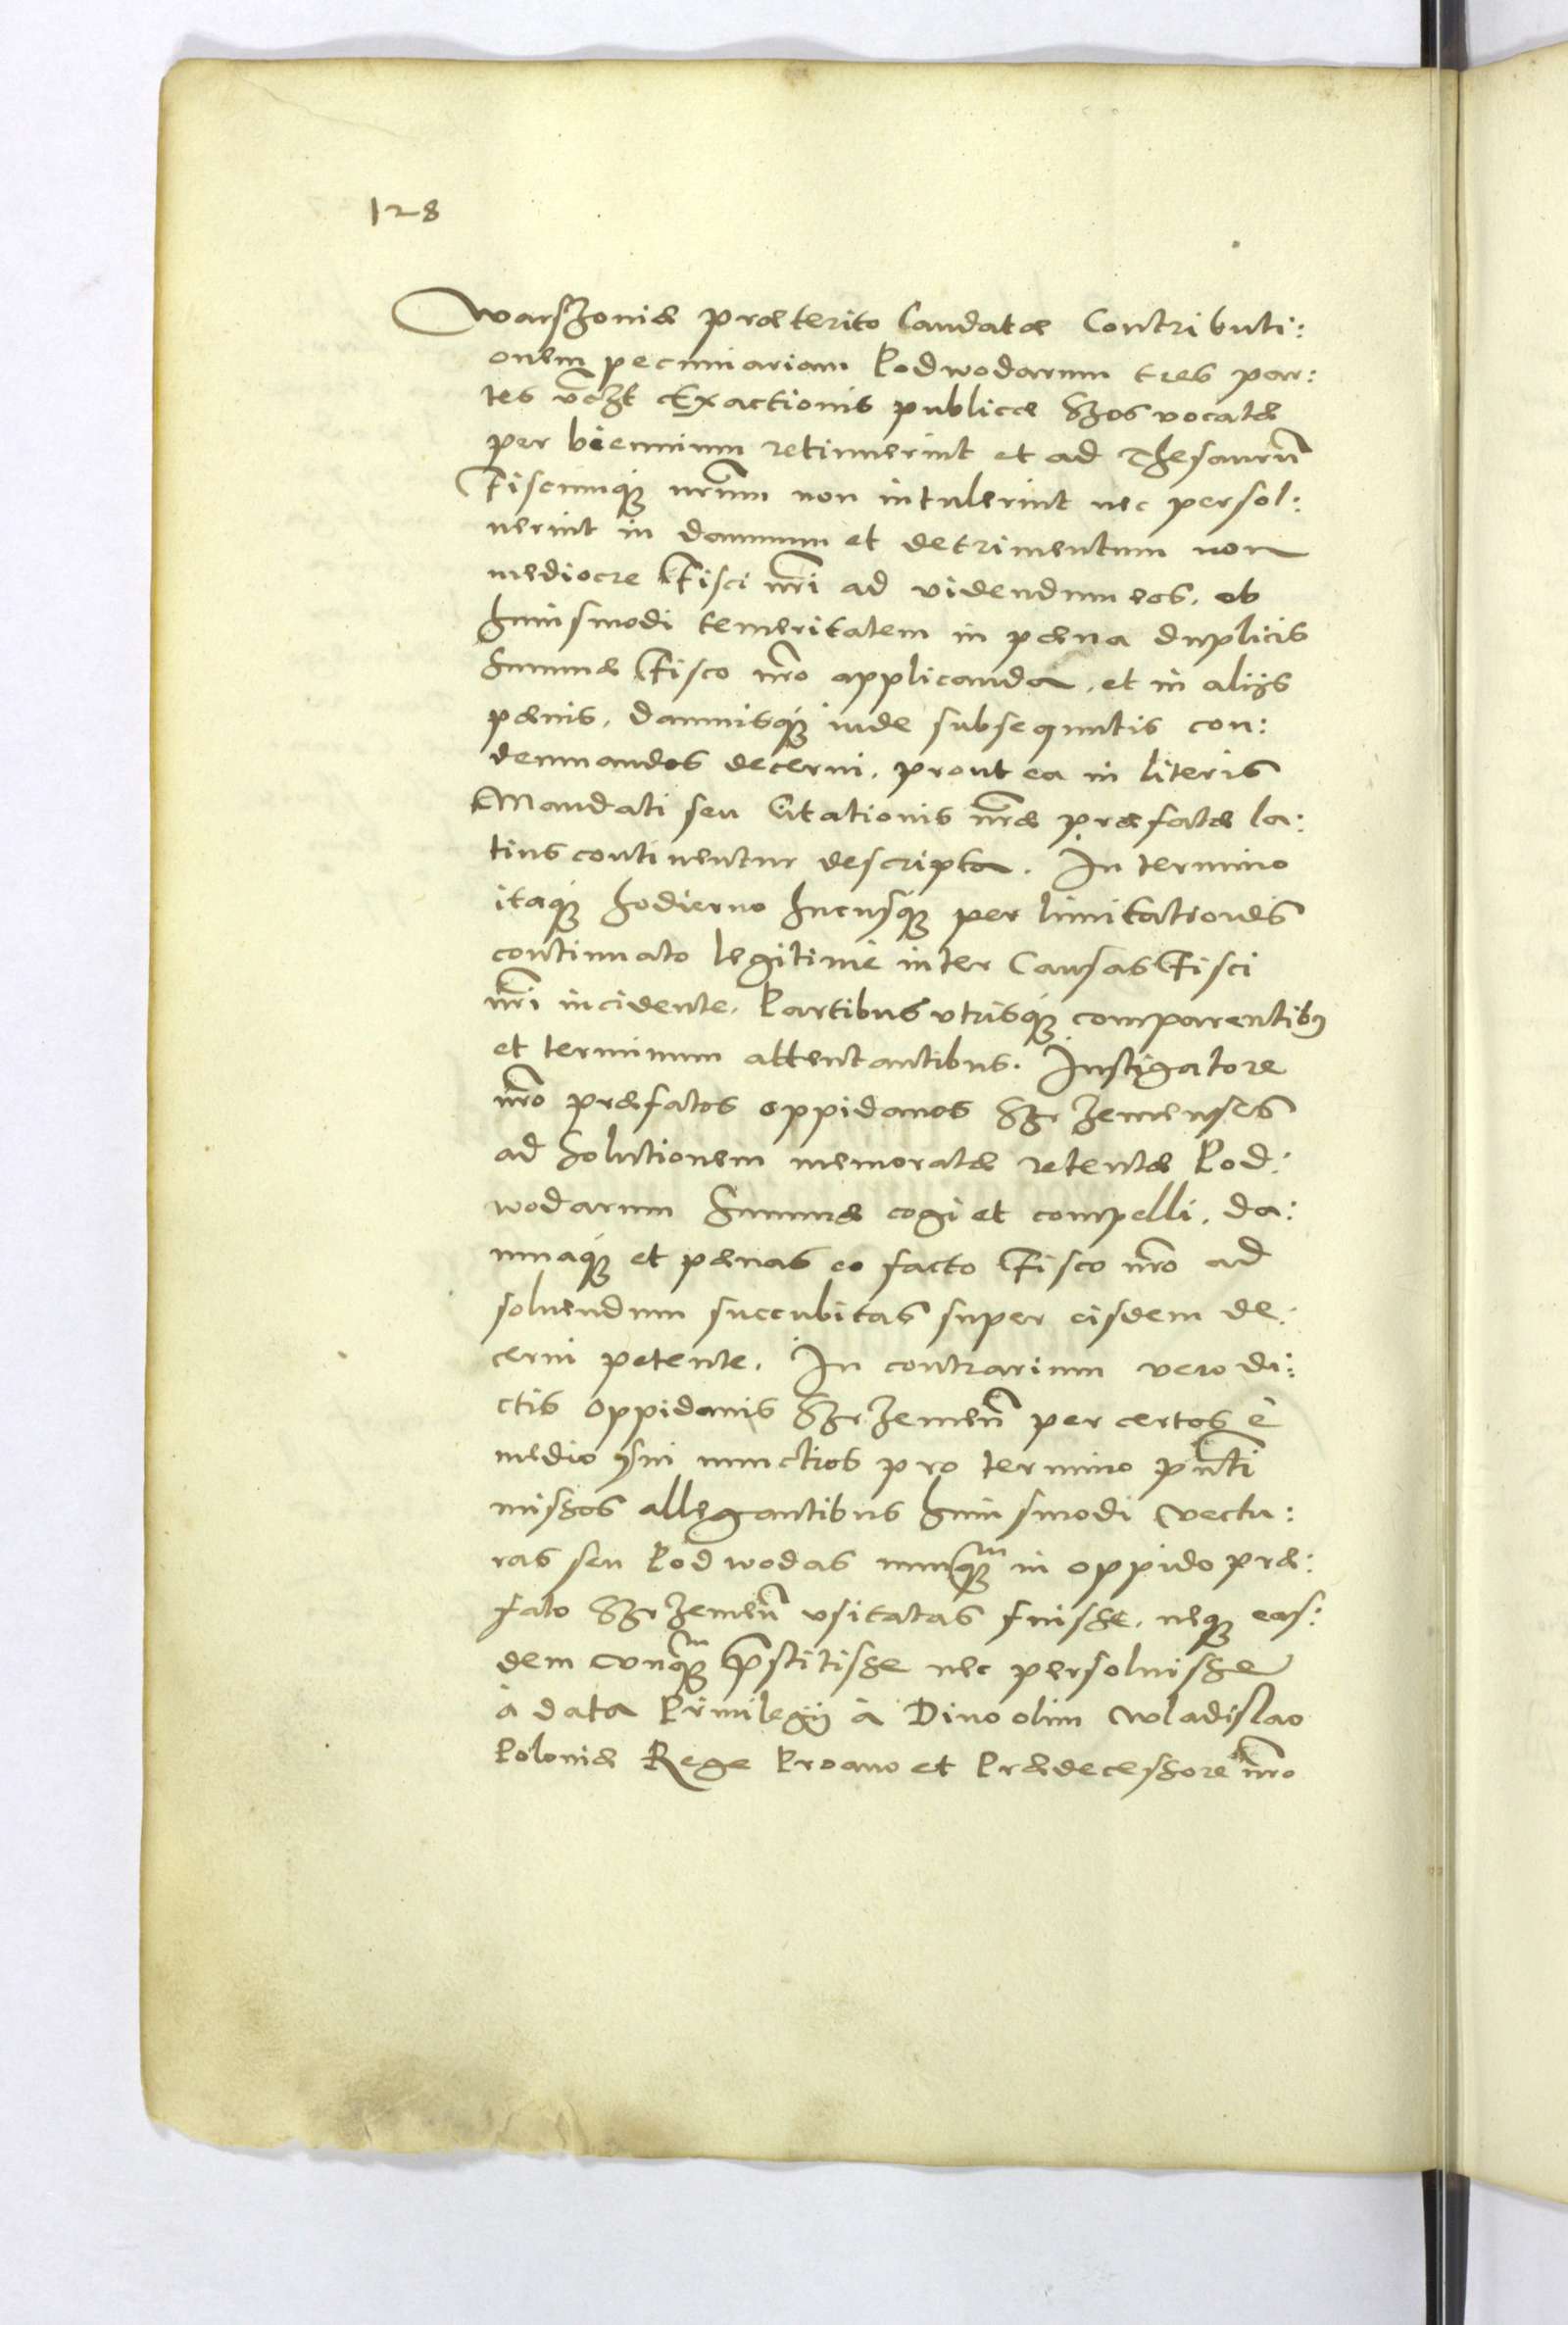 128
Warszoviæ præterito laudatæ Contributi:
onem pecuniariam Podwodarum tres par:
tes vczt Exactionis publicæ Szos vocatæ
per biennium retinuerint et ad Thesaurũ
Fiscumq3 nr̃um non intulerint nec persol:
uerint in damnum et detrimentum non
mediocre Fisci nr̃i ad videndum eos, ob
huiusmodi temeritatem in pæna duplicis
Summæ Fisco nr̃o applicanda, et in alijs
pænis, damnisq3 inde subsequutis con:
demnandos decerni, prout ea in literis
Mandati seu Citationis nr̃æ præfatæ la:
tius continentur descripta. In termino
itaq3 hodierno hucusq3 per limitationes
continuato legitimè inter Causas Fisci
nr̃i incidente, Partibus vtrisq3 comparentib9
et terminum attentantibus. Instigatore
nr̃o præfatos oppidanos Szrzemenses
ad Solutionem memoratæ retentæ Pod:
wodarum Summæ cogi et compelli, da:
mnaq3 et pænas eo facto Fisco nr̃o ad
soluendum succubitas super eisdem de:
cerni petente. In contrarium vero di:
ctis Oppidanis Szrzemeñ per certos è
medio sui nunctios pro termino pñti
missos allegantibus huiusmodi vectu:
ras seu Podwodas nunq3m in oppido præ:
fato Szrzemeñ vsitatas fuisse, neq3 eas:
dem vnq3m p̃stitisse nec persoluisse
à data Priuilegij à Diuo olim Wladislao
Poloniæ Rege Proauo et Prædecessore nr̃o